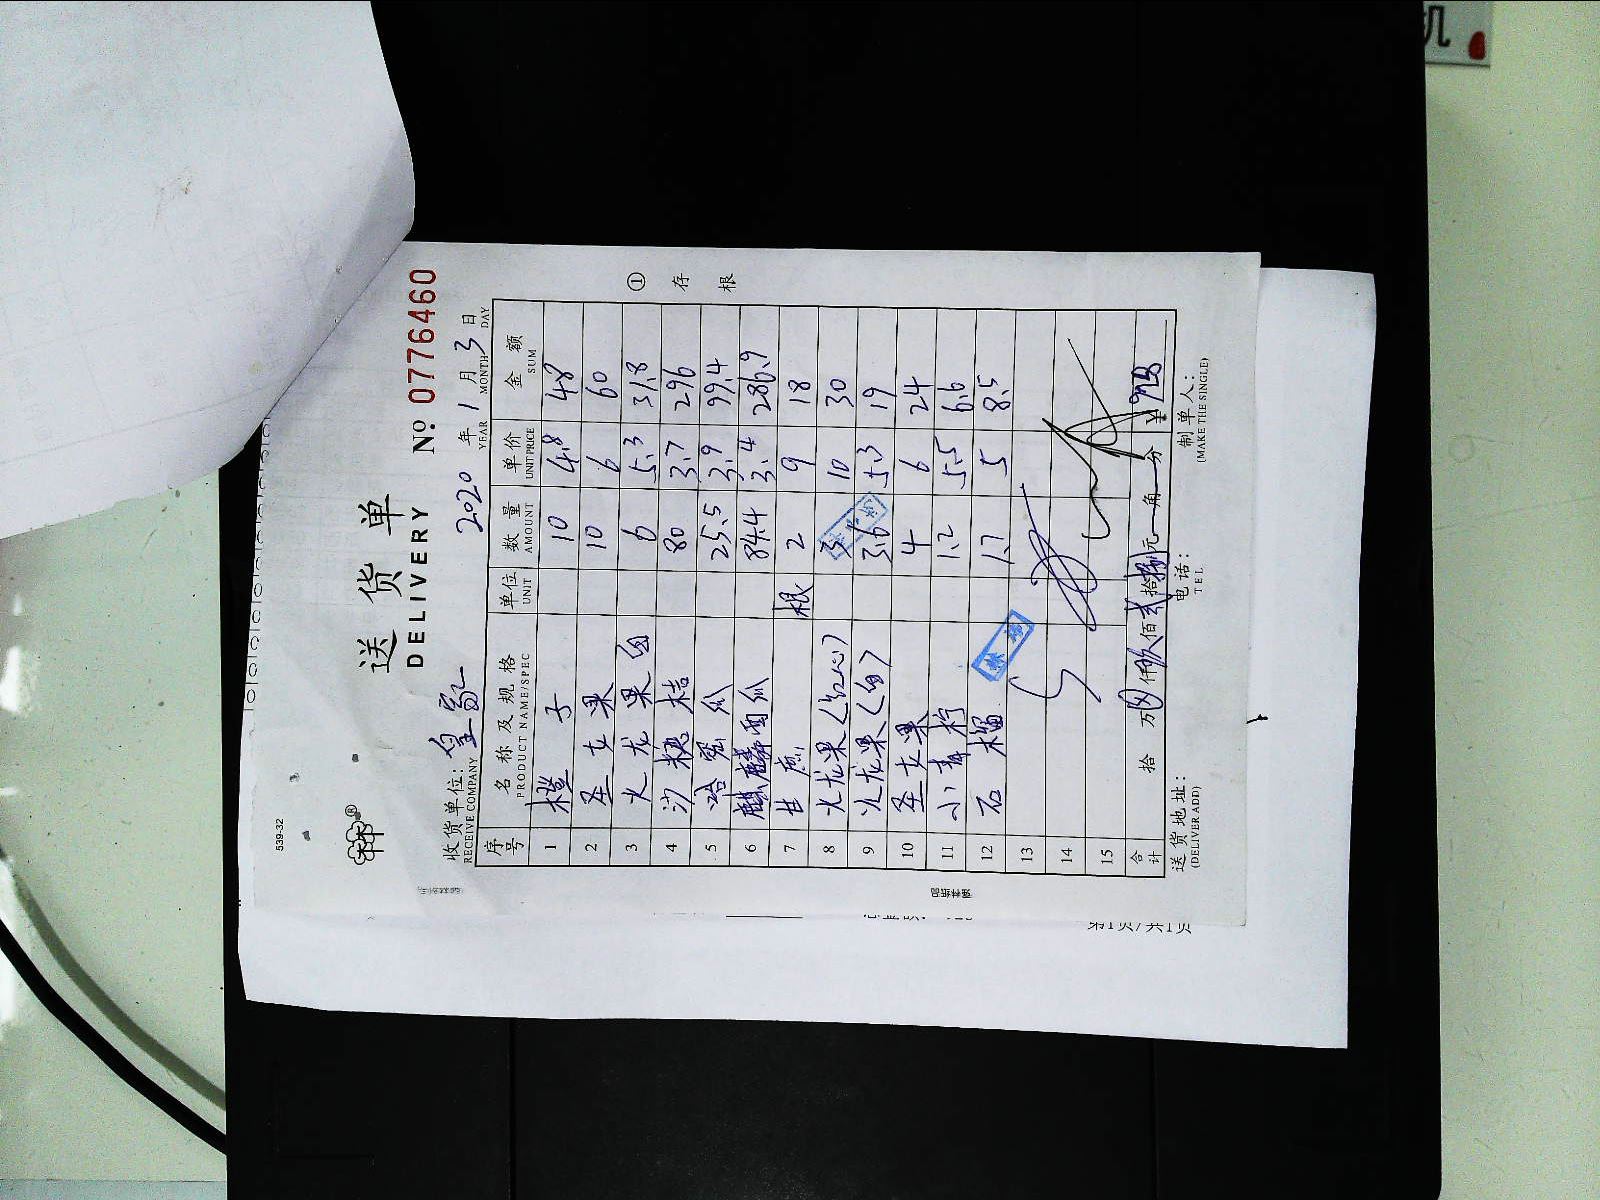 539-32
送货单
DELIVERY
№ 0776460
收货单位:
RECEIVE COMPANY
2020 年 1 月 3 日
YEAR MONTH DAY
序号 名称及规格 单位 数量 单价 金额
PRODUCT NAME/SPEC UNIT AMOUNT UNIT PRICE SUM
1 橙子 10 4.8 48
2 圣女果 10 6 60
3 火龙果(白 6 5.3 31.8
4 沙糖桔 80 3.7 296
5 哈密瓜 25.5 3.9 99.4
6 麒麟西瓜 84.4 3.4 286.9
7 甘蔗 根 2 9 18
8 火龙果(红心) 3 10 30
9 火龙果(白) 3.6 5.3 19
10 圣女果 4 6 24
11 小青柠 1.2 5.5 6.6
12 石榴 1.7 5 8.5
13
14
15
合计 拾 万 仟 佰 拾 元 角 分 ¥ 928
送货地址:
(DELIVER ADD)
电话:
TEL
制单人:
(MAKE THE SINGLE)
① 存根
第1页/共1页
机